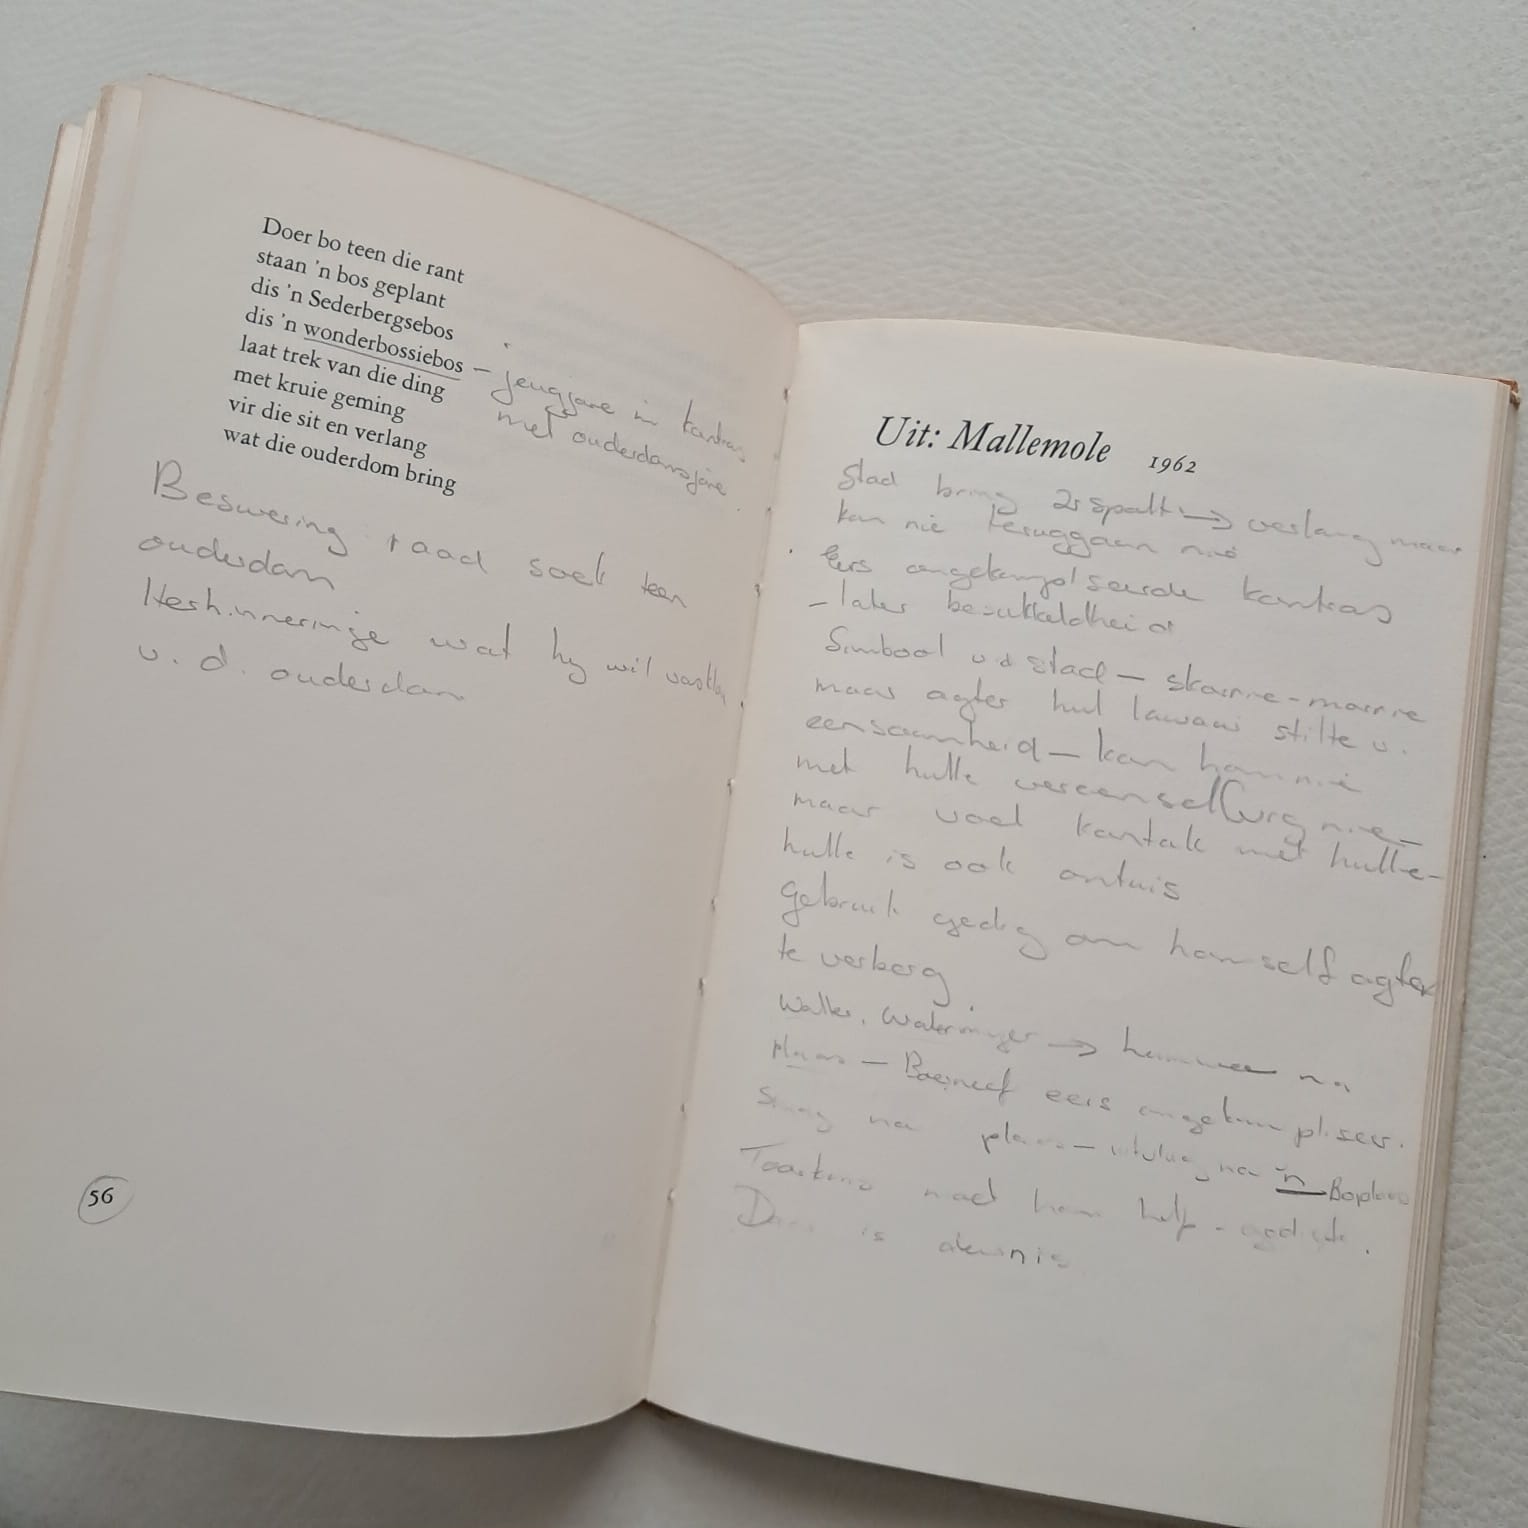 Doer bo teen die rant
staan 'n bos geplant
dis 'n Sederbergsebos
dis 'n wonderbossiebos
laat trek van die ding
met kruie geming
vir die sit en verlang
wat die ouderdom bring
– jeugjare in kontras
met ouderdomsjare
Beswering raad soek teen
ouderdom
Herhinneringe wat hy wil
v. d. ouderdom
56
Uit: Mallemole 1962
Stad bring 2spalt → verlang maar
kan nie teruggaan nie
Eers ongekompliseerde kontras
– later
Simbool v d stad – skarrie-marrie
maar agter hul lawaai stilte v.
eensaamheid – kan hom nie
met hulle vereenselwig nie –
maar voel kontak met hulle –
hulle is ook ontuis
Gebruik gedig om homself agter
te verberg
→ heimwee na
plaas – Boerneef eers ongekompliseer.
na plaas – na 'n Boplaas
hom help -
is